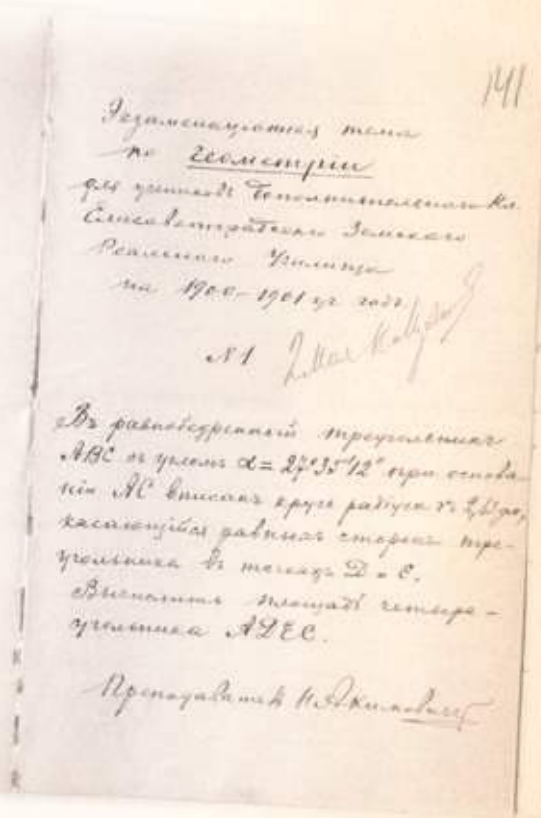 141
Экзаменаціонная тема
по Геометріи
для учениковъ дополнительнаго Кл.
Елисаветградскаго Земскаго
Реальнаго Училища
на 1900-1901 уч. годъ.
№ 1
Въ равнобедренный треугольникъ
ABC съ угломъ α = 27°35'12" при основа-
ніи AC вписанъ кругъ радіуса r=
касающійся равныхъ сторонъ тре-
угольника въ точкахъ D и E.
Вычислить площадь четыре-
угольника ADEC.
Преподаватель